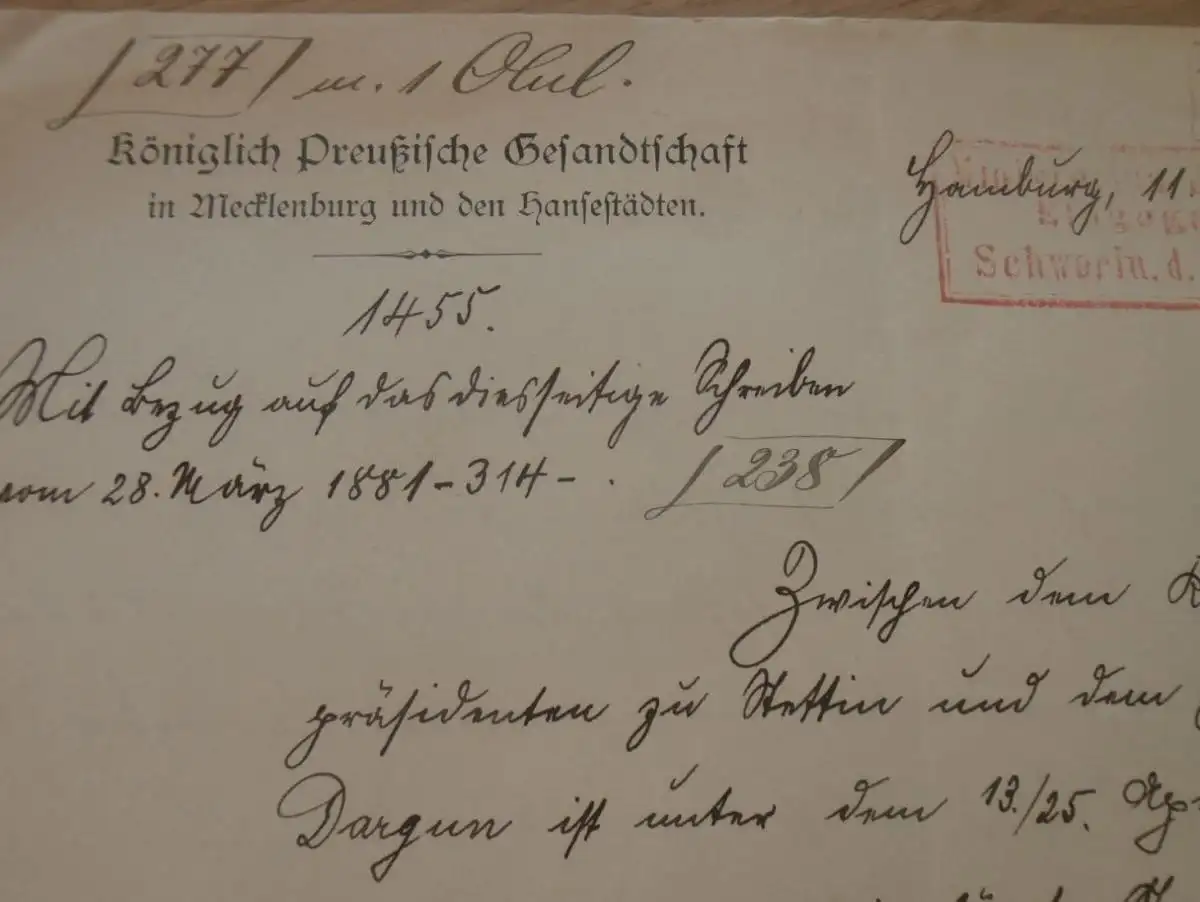 [277] m. 1 Anl.
Königlich Preußische Gesandtschaft
in Mecklenburg und den Hansestädten.
Hamburg, 11.
Schwerin. d.
1455.
Mit Bezug auf das diesseitige Schreiben
vom 28. März 1881 - 314 - .
[238]
Zwischen dem
präsidenten zu Stettin und dem
Dargun ist unter dem 13./25.